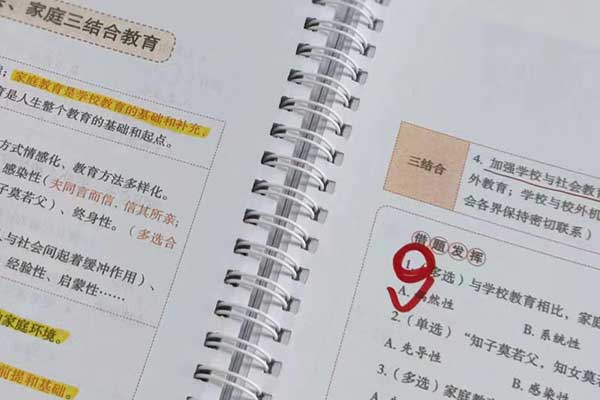 、家庭三结合教育
家庭教育是学校教育的基础和补充,
育是人生整个教育的基础和起点。
方式情感化、教育方法多样化。
感染性(夫同言而信,信其所亲;
子莫若父)、终身性。(多选合
与社会间起着缓冲作用)、
经验性、启蒙性……
家庭环境。
前提和基础。
三结合
4. 加强学校与社会教育
外教育;学校与校外机
会各界保持密切联系)
借题发挥
1.(多选)与学校教育相比,家庭
A. 偶然性
B. 系统性
2.(单选)“知子莫若父,知女莫
A. 先导性
B. 感染性
3.(多选)家庭教